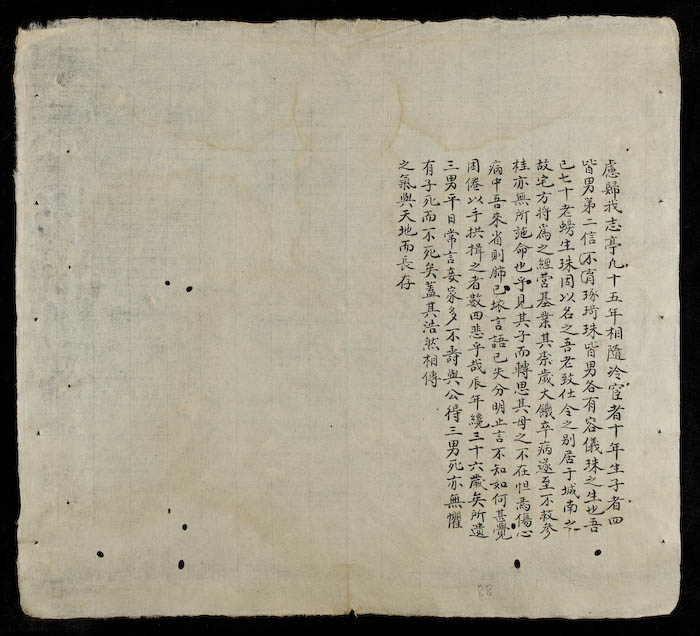 慮歸找志亭凡十五年相隨冷宦者十年生子者四
皆男第二信不育琢琦珠皆男各有容儀珠之生也吾
已七十老蚌生珠因以名之吾老致仕令之别居于城南之
故宅方將爲之經营基業其柰歲大饑卒病遂至不救参
桂亦無所施命也乎見其子而轉思其母之不在怛焉傷心
病中吾來省則肺已坏言語已失分明止言不知如何甚覺
困倦以手拱揖之者數四悲乎哉辰年纔三十六歲矣所遺
三男平日常言妾家多不壽與公得三男死亦無懼
有子死而不死矣蓋其浩然相傳
之氣與天地而長存
88